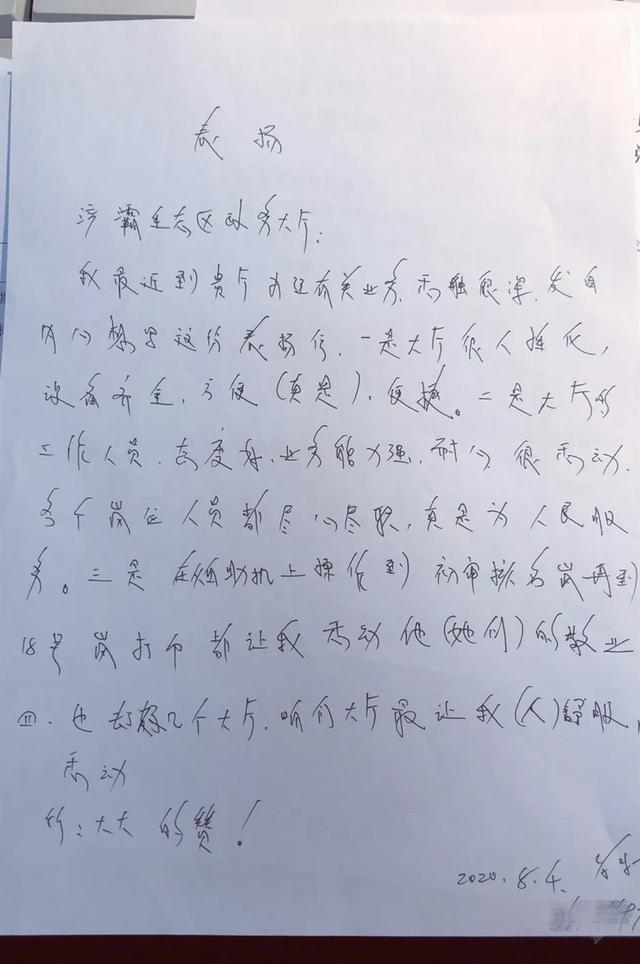 表扬
浐灞生态区政务大厅:
我最近到贵厅办理有关业务,感触很深,发自
内心想写这份表扬信,一是大厅很人性化,
设备齐全,方便(真是),便捷。二是大厅的
工作人员,态度好,业务能力强,耐心很感动,
各个岗位人员都尽心尽职,真是为人民服
务。三是在自助机上操作到初审核各岗再到
18号岗打印都让我感动他(她们)的敬业
四.也去好几个大厅,咱们大厅最让我(人)舒服,
感动
给:大大的赞!
2020.8.4.